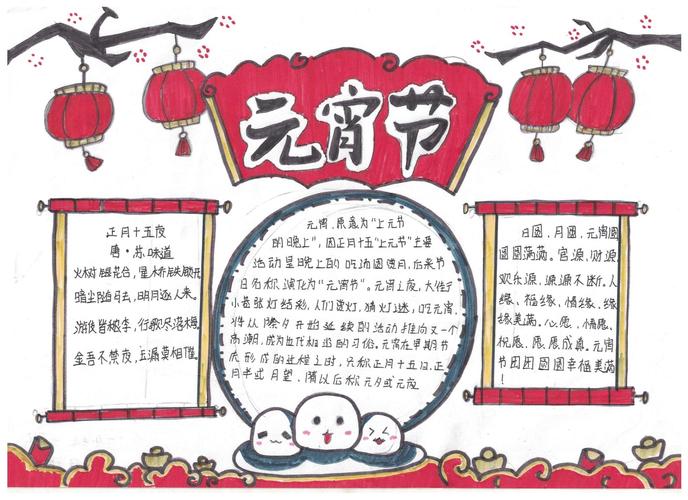 元宵节
正月十五夜
唐·苏味道
火树银花合，星桥铁锁开
暗尘随马去，明月逐人来。
游伎皆秾李，行歌尽落梅
金吾不禁夜，玉漏莫相催。
元宵，原意为"上元节
的晚上"，因正月十五"上元节"主要
活动是晚上的吃汤圆赏月，后来节
日名称演化为"元宵节"。元宵之夜，大街
小巷张灯结彩，人们赏灯，猜灯谜，吃元宵，
将从除夕开始延续的活动推向又一个
高潮，成为世代相沿的习俗。元宵在早期节
庆形成的过程之时，只称正月十五日、正
月半或月望，隋以后称元夕或元夜
日圆，月圆，元宵圆
圆圆满满。官源，财源，
欢乐源，源源不断。人
缘，福缘，情缘，缘
缘美满。心愿，情愿，
祝愿，愿愿成真。元宵
节团团圆圆幸福美满
！